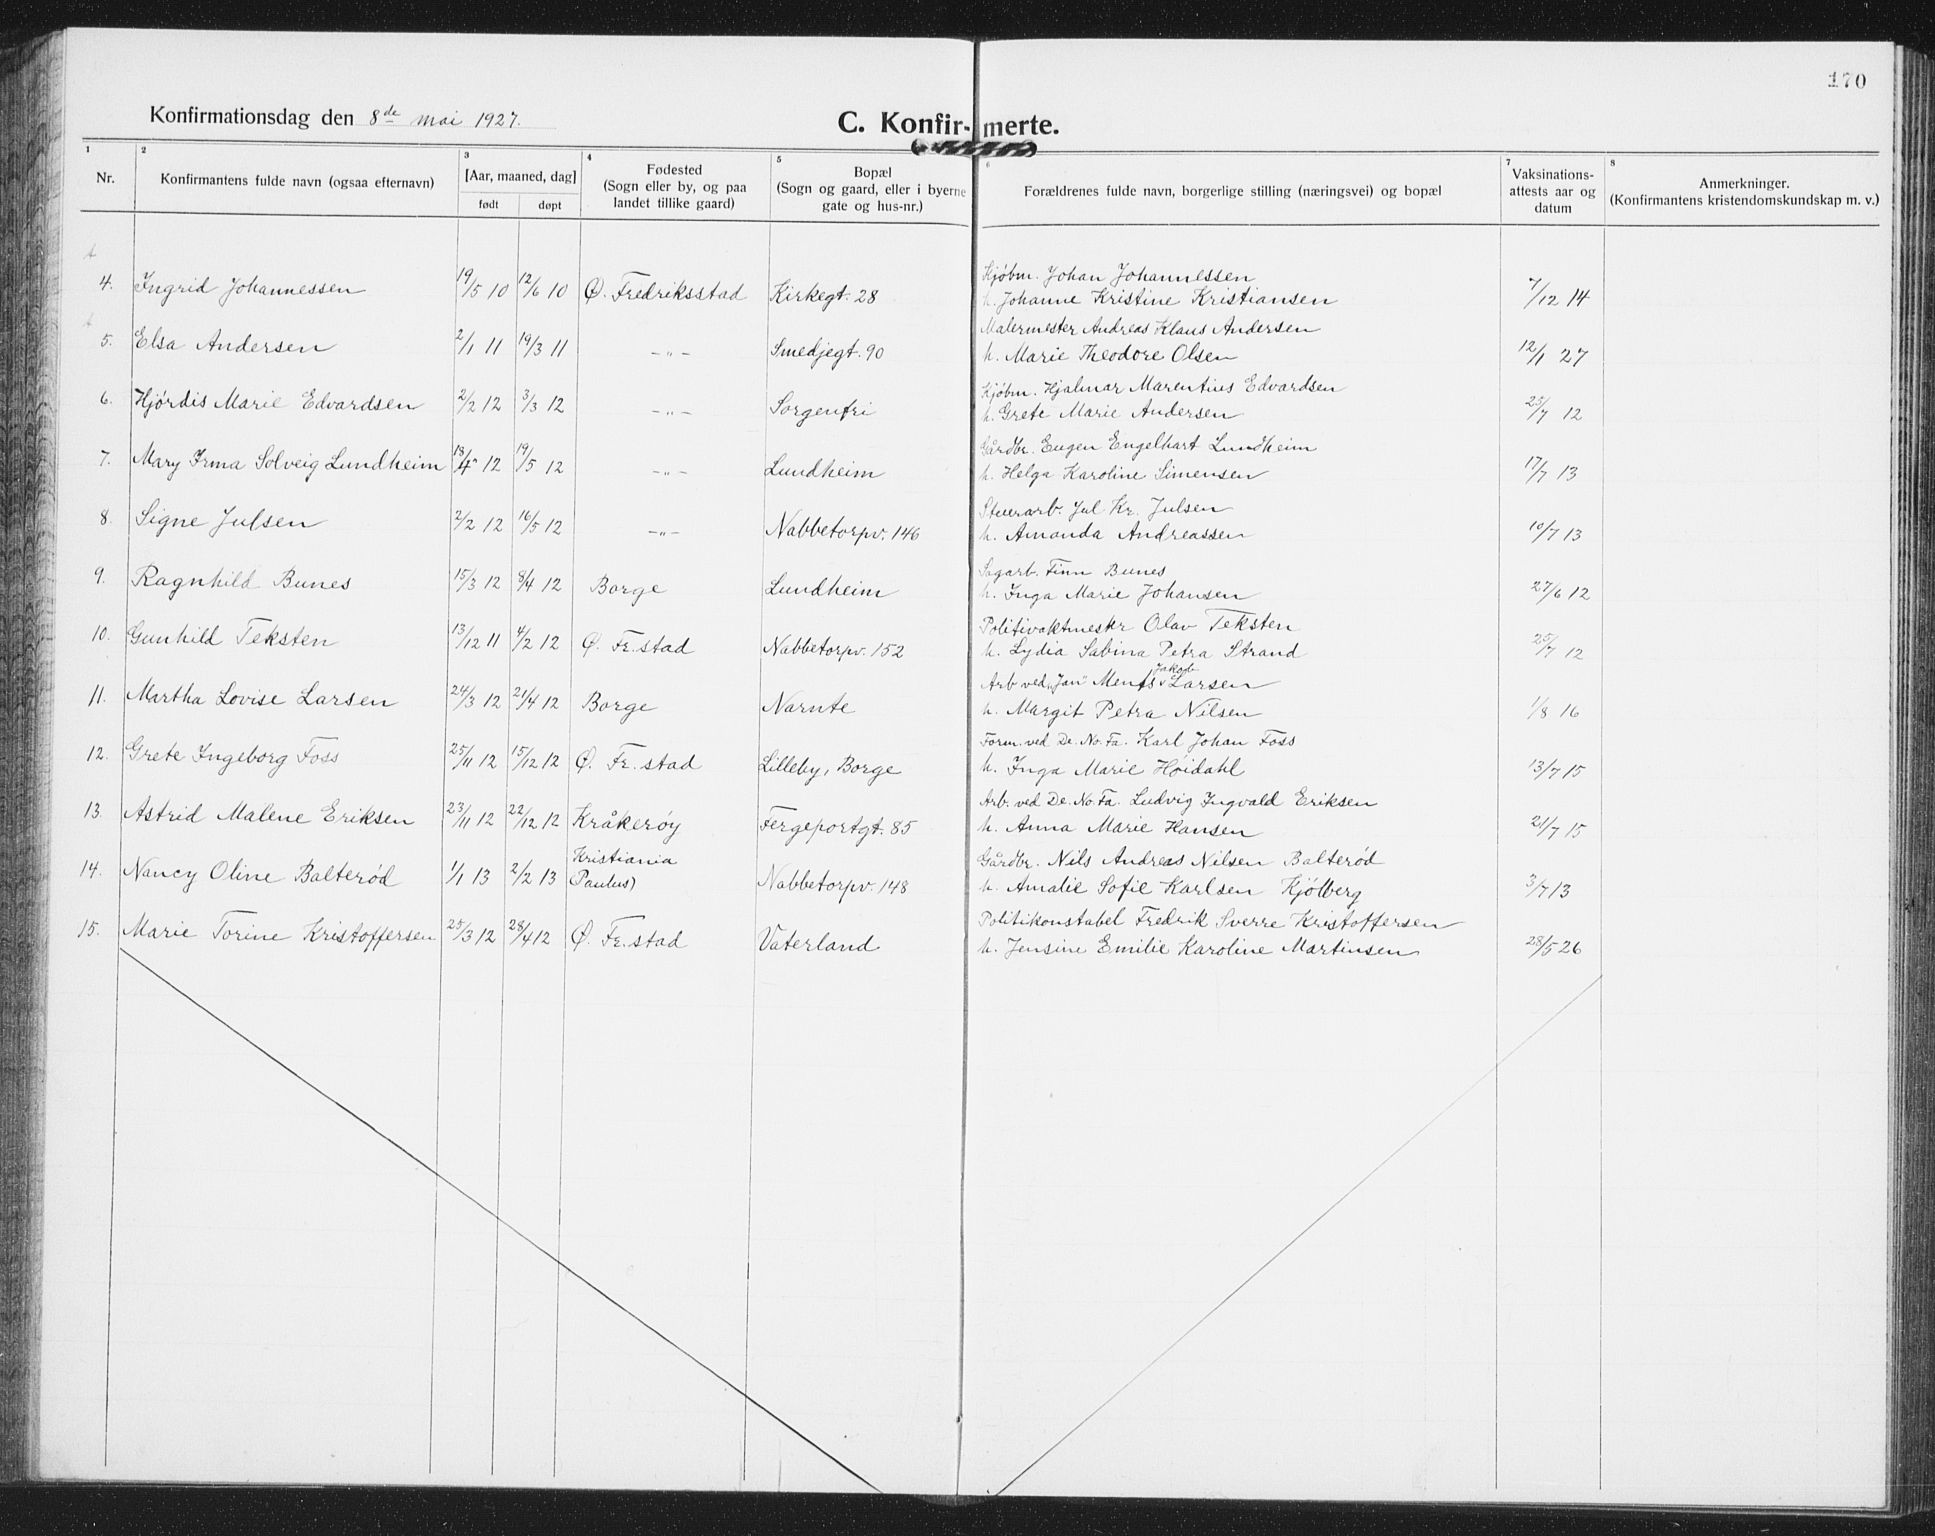 170
Konfirmationsdag den 8de mai 1927.
C. Konfir- merte.
1 2 3 4 5 6 7 8
Nr.
Konfirmantens fulde navn (ogsaa efternavn)
[Aar, maaned, dag]
født døpt
Fødested
(Sogn eller by, og paa
landet tillike gaard)
Bopæl
(Sogn og gaard, eller i byerne
gate og hus-nr.)
Forældrenes fulde navn, borgerlige stilling (næringsvei) og bopæl
Vaksinations-
attests aar og
datum
Anmerkninger.
(Konfirmantens kristendomskundskap m. v.)
4. Ingrid Johannessen 19/5 10 12/6 10 Ø. Fredriksstad Kirkegt. 28
Kjøbm. Johan Johannessen
h. Johanne Kristine Kristiansen 7/12 14
5. Elsa Andersen 2/1 11 19/3 11 -"- Smedjegt. 90
Malermester Andreas Klaus Andersen
h. Marie Theodore Olsen 12/1 27
6. Hjørdis Marie Edvardsen 2/2 12 3/3 12 -"- Sorgenfri
Kjøbm. Hjalmar Marentius Edvardsen
h. Grete Marie Andersen 25/7 12
7. Mary Irma Solveig Lundheim 18/4 12 19/5 12 -"- Lundheim
Gårdbr. Eugen Engelhart Lundheim
h. Helga Karoline Simensen 17/7 13
8. Signe Julsen 2/2 12 16/5 12 -"- Nabbetorpv. 146
Stuerarb. Jul Kr. Julsen
h. Amanda Andreassen 10/7 13
9. Ragnhild Bunes 15/3 12 8/4 12 Borge Lundheim
Sagarb. Finn Bunes
h. Inga Marie Johansen 27/6 12
10. Gunhild Teksten 13/12 11 4/2 12 Ø. Fr.stad Nabbetorpv. 152
Politivaktmester Olav Teksten
h. Lydia Sabina Petra Strand 25/7 12
11. Martha Lovise Larsen 24/3 12 21/4 12 Borge Narnte
Jakob
Arb ved "Jan" Larsen
h. Margit Petra Nilsen 1/8 16
12. Grete Ingeborg Foss 25/11 12 15/12 12 Ø. Fr. stad Lilleby, Borge
Form. ved De. No. Fa. Karl Johan Foss
h. Inga Marie Høidahl 13/7 15
13. Astrid Malene Eriksen 23/11 12 22/12 12 Kråkerøy Fergeportgt. 85
Arb. ved De. No. Fa. Ludvig Ingvald Eriksen
h. Anna Marie Hansen 21/7 15
14. Nancy Oline Balterød 1/1 13 2/2 13 Kristiania
(Paulus) Nabbetorpv. 148
Gårdbr. Nils Andreas Nilsen Balterød
h. Amalie Sofie Karlsen Kjølberg 3/7 13
15. Marie Torine Kristoffersen 25/3 12 28/4 12 Ø. Fr. stad Vaterland
Politikonstabel Fredrik Sverre Kristoffersen
h. Jensine Emilie Karoline Martinsen 28/5 26